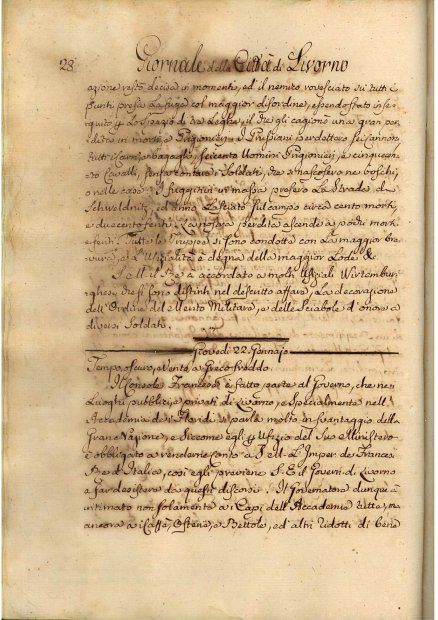 28 Giornale della Città di Livorno
azione restò decisa in momenti, ed il nemico rovesciato su tutti i
punti prese la fuga col maggior disordine, essendo stato inse-
guito p lo spazio di tre Leghe, il che gli cagionò una gran per-
dita in morti, e Prigionieri. I Prussiani perdettero sei cannoni
tutti i bagagli, seicento Uomini Prigionieri, e cinquecen-
to Cavalli, senza contare i Soldati, che si nascosero ne boschi,
o nelle case. I fuggitivi in massa presero la strada di
Schweidnitz, ed hanno lasciato sul campo circa cento morti,
e duecento feriti. La nostra perdita ascende a pochi morti
e feriti. Tutte le truppe si sono condotte con la maggior bra-
vura, e l'Uffizialità è degna della maggior Lode &c
S. M. il Re à accordato a molti Uffiziali Wirtembur-
ghesi che si sono distinti nel descritto affare, la decorazione
dell'Ordine del Merito Militare, e delle Sciabole d'onore a
diversi Soldati.
Giovedì 22. Gennajo
Tempo oscuro, e Vento a Greco freddo
Il Console Francese à fatto parte al Governo, che nei
Luoghi pubblici, e privati di Livorno, e specialmente nell'
Accademia de' Floridi si parla molto in svantaggio della
Gran Nazione, e siccome egli p Ufizio del Suo Ministero
è obbligato a renderne conto a S. M. L'Imper. de Francesi
Re d'Italia, così egli previene S. E. il Govern. di Livorno
a far desistere da questi discorsi. Il Governatore dunque à
intimato non solamente a i Capi dell'Accademia dette, ma
ancora a i Caffè, Osterie, e Bettole, ed altri ridotti di bene